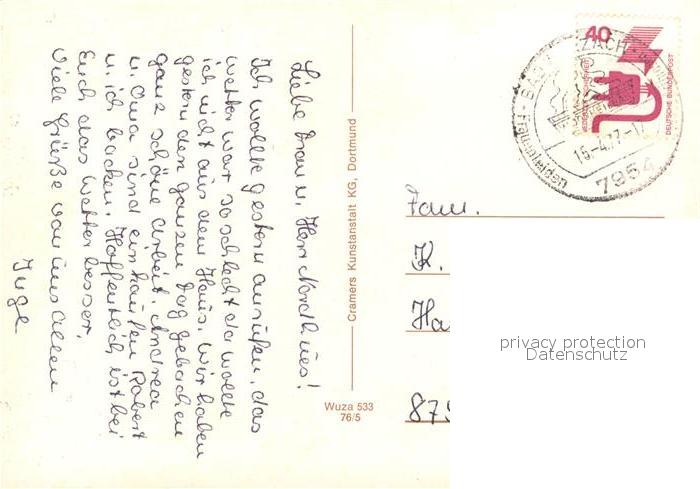 Liebe Frau u. Herr Nordhues!
Ich wollte gestern anrufen, das
Wetter war so schlecht da wollte
ich nicht aus dem Haus. Wir haben
gestern den ganzen Tag gebacken
ganz schöne Arbeit. Andrea
u. Oma sind einkaufen Robert
u. ich backen. Hoffentlich ist bei
Euch das Wetter besser.
Viele Grüße von uns allen
Inge
Cramers Kunstanstalt KG, Dortmund
Wuza 533
76/5
40
DEUTSCHE BUNDESPOST
15.-4.77-1
7954
Fam.
K.
Ha
879
privacy protection
Datenschutz